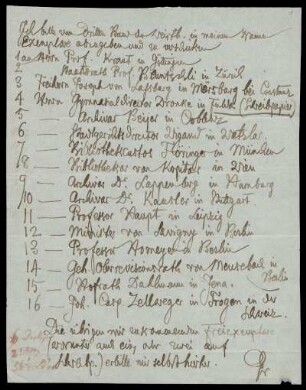 Ich bitte vom dritten Band der Weisth. in meinem Namen
Exemplare abzugeben und zu verschicken
1 an Herrn Prof. Kraut in Göttingen
2 Staatsrath Prof. Bluntschli in Zürich
3 Freiherrn Joseph von Lassberg in Mörsburg bei Constanz
4 Herrn Gymnasialdirector Dronke in Fulda (Schreibpapier)
5 — Archivar Beyer in Coblenz
6 — Director Wigand in Wetzlar
7 — Bibliothecar Föringer in München
8 — Bibliothecar von Kopitar in Wien
9 — Archivar Dr. Lappenberg in Hamburg
10 — Archivar Dr. Kausler in Stuttgart
11 — Professor Haupt in Leipzig
12 — Minister von Savigny in Berlin
13 — Professor Homeyer in Berlin
14 — Geh. Oberrevisionsrath von Meusebach in Berlin
15 — Hofrath Dahlmann in Jena.
16 — Joh. Casp. Zellweger in Trogen in der
Schweiz
Die übrigen mir zukommenden Freiexemplare
(worunter auch ein, oder zwei auf
Schreibp.) erbitte mir selbst hierher.